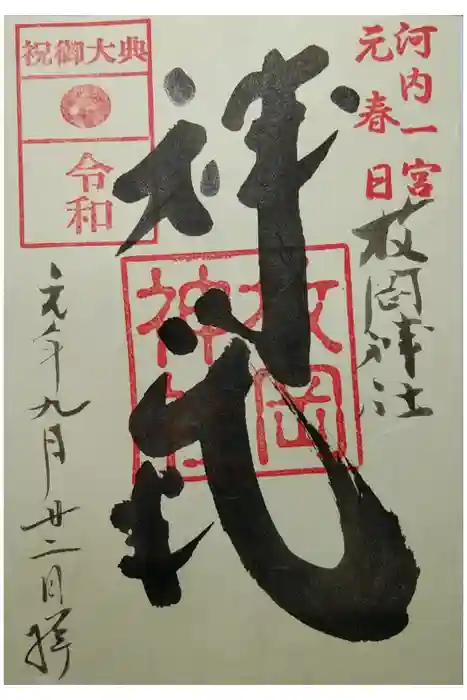 河内一宮
元春日
枚岡神社
神
枚岡
神社
祝御大典
令和
元年九月廿二日拝